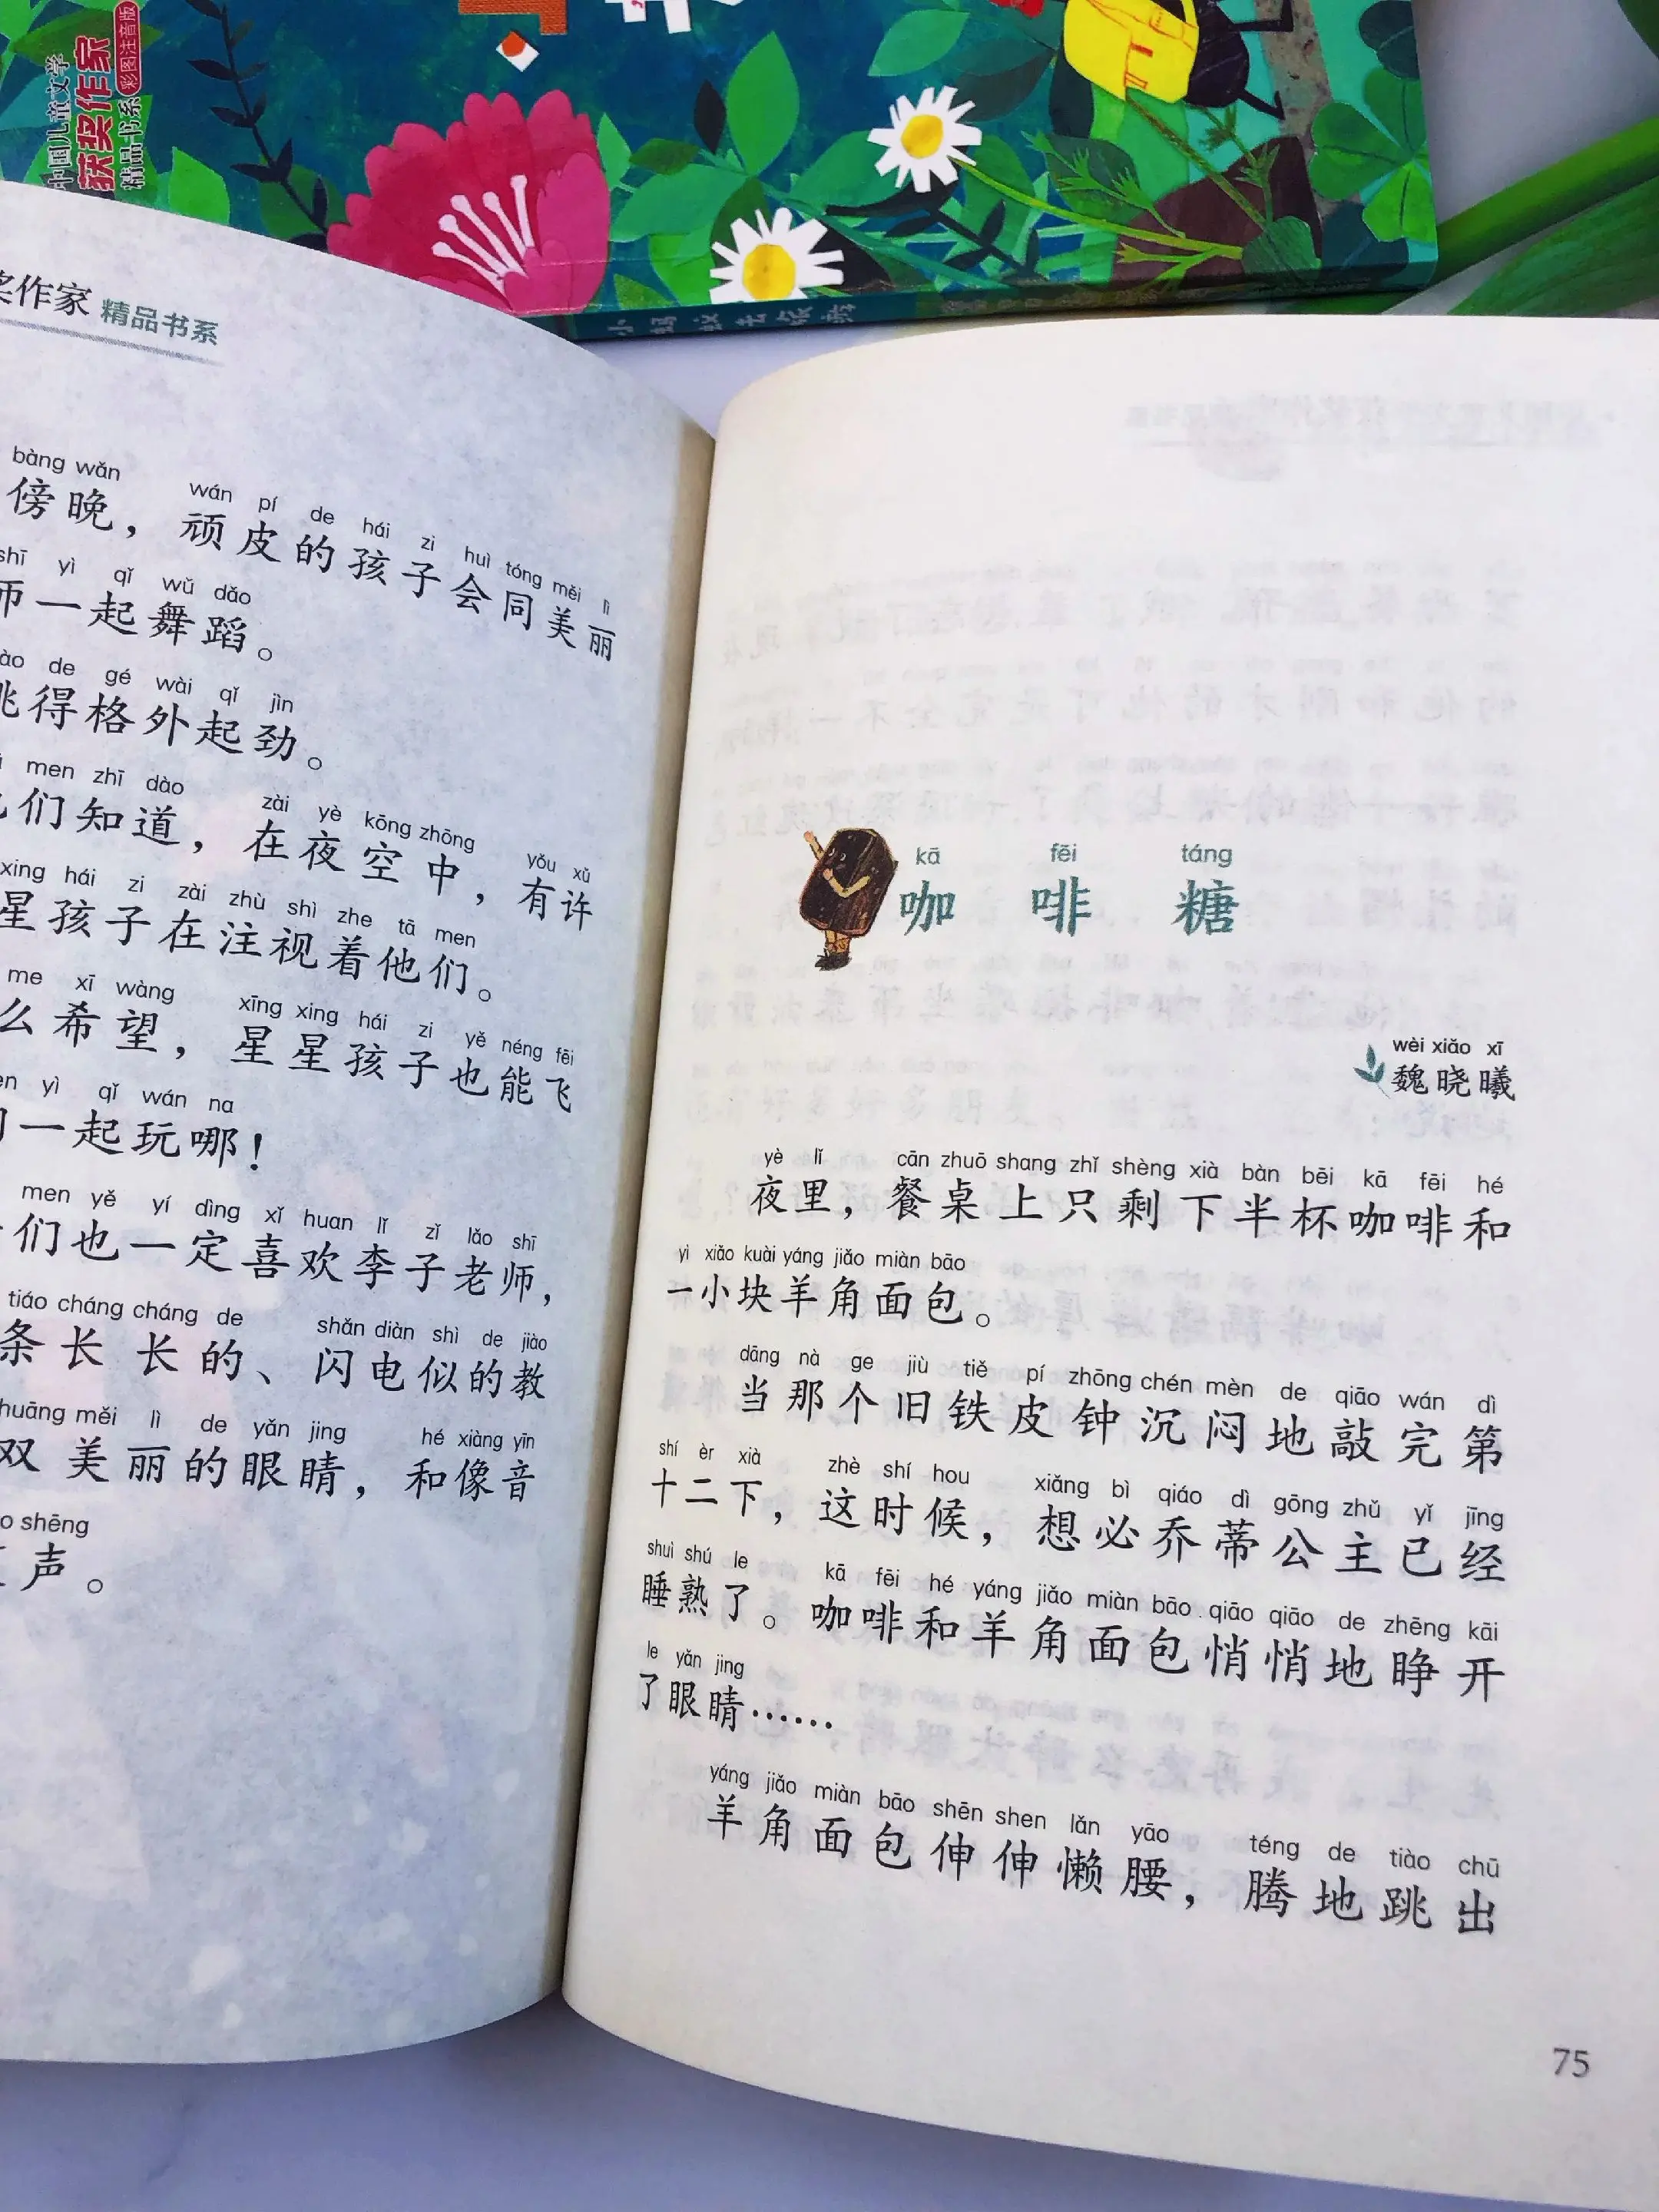 中国儿童文学
获奖作家
精品书系
彩图注音版
小蚂蚁去旅游
奖作家 精品书系
bàng wǎn wán pí de hái zi huì tóng měi lì
傍晚，顽皮的孩子会同美丽
shī yì qǐ wǔ dǎo
师一起舞蹈。
de gé wài qǐ jìn
跳得格外起劲。
men zhī dào zài yè kōng zhōng yǒu xǔ
们知道，在夜空中，有许
xing hái zi zài zhù shì zhe tā men
星孩子在注视着他们。
me xī wàng xīng xing hái zi yě néng fēi
么希望，星星孩子也能飞
yì qǐ wán na
一起玩哪！
men yě yí dìng xǐ huan lǐ zǐ lǎo shī
们也一定喜欢李子老师，
tiáo cháng cháng de shǎn diàn shì de jiào
条长长的、闪电似的教
huāng měi lì de yǎn jing hé xiàng yīn
双美丽的眼睛，和像音
shēng
声。
kā fēi táng
咖啡糖
wèi xiǎo xī
魏晓曦
yè lǐ cān zhuō shang zhǐ shèng xià bàn bēi kā fēi hé
夜里，餐桌上只剩下半杯咖啡和
yì xiǎo kuài yáng jiǎo miàn bāo
一小块羊角面包。
dāng nà ge jiù tiě pí zhōng chén mèn de qiāo wán dì
当那个旧铁皮钟沉闷地敲完第
shí èr xià zhè shí hou xiǎng bì qiáo dì gōng zhǔ yǐ jīng
十二下，这时候，想必乔蒂公主已经
shuì shú le kā fēi hé yáng jiǎo miàn bāo qiāo qiāo de zhēng kāi
睡熟了。咖啡和羊角面包悄悄地睁开
le yǎn jing
了眼睛……
yáng jiǎo miàn bāo shēn shen lǎn yāo téng de tiào chū
羊角面包伸伸懒腰，腾地跳出
75